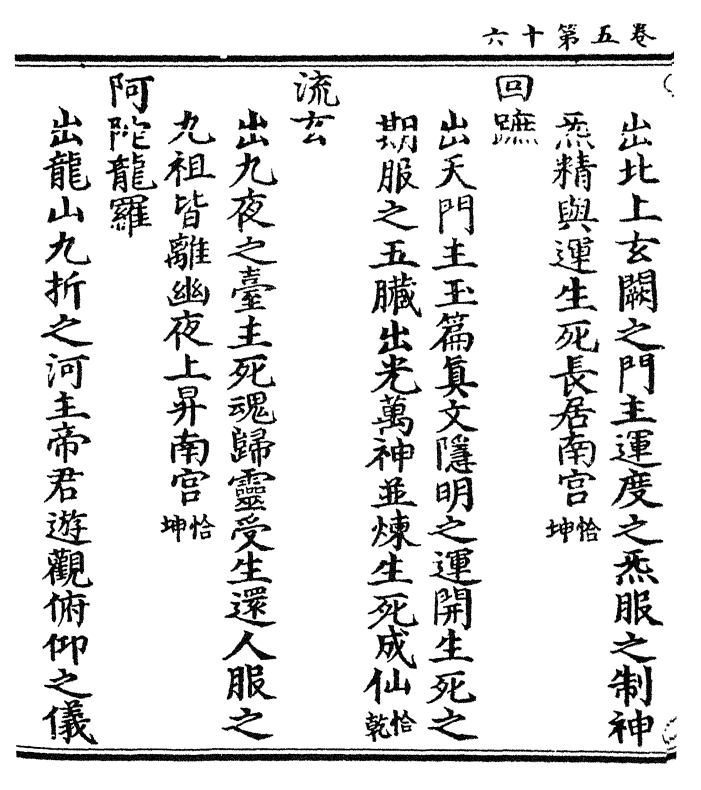 卷五第十六
出北上玄闕之門主運度之炁服之制神
炁精與運生死長居南宫恰坤
回蹠
出天門主玉篇真文隱明之運開生死之
期服之五臟出光萬神並煉生死成仙恰乾
流玄
出九夜之臺主死魂歸靈受生還人服之
九祖皆離幽夜上昇南宫恰坤
阿陀龍羅
出龍山九折之河主帝君遊觀俯仰之儀